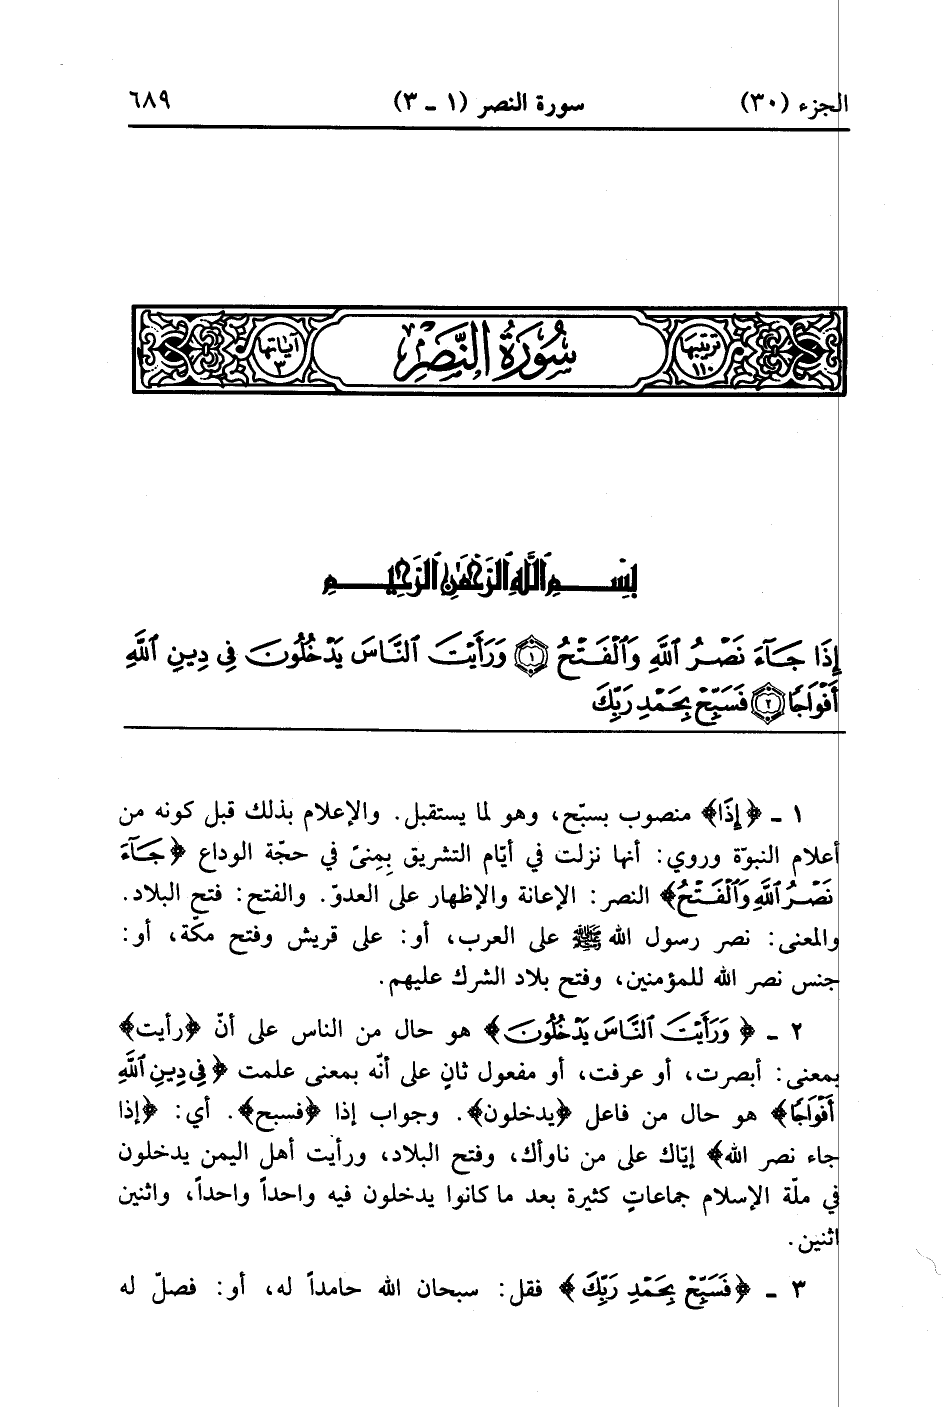 الجزء (٣٠) سورة النصر (١ - ٣) ٦٨٩
ترتيبها ١١٠ سُورَةُ النَّصْرِ آياتها ٣
بِسْمِ اللَّهِ الرَّحْمَٰنِ الرَّحِيمِ
إِذَا جَآءَ نَصْرُ ٱللَّهِ وَٱلْفَتْحُ ١ وَرَأَيْتَ ٱلنَّاسَ يَدْخُلُونَ فِى دِينِ ٱللَّهِ
أَفْوَاجًا ٢ فَسَبِّحْ بِحَمْدِ رَبِّكَ
١ - ﴿إِذَا﴾ منصوب بسبّح، وهو لما يستقبل. والإعلام بذلك قبل كونه من
أعلام النبوّة وروي: أنها نزلت في أيّام التشريق بِمِنىً في حجّة الوداع ﴿جَآءَ
نَصْرُ ٱللَّهِ وَٱلْفَتْحُ﴾ النصر: الإعانة والإظهار على العدوّ. والفتح: فتح البلاد.
والمعنى: نصر رسول الله ﷺ على العرب، أو: على قريش وفتح مكّة، أو:
جنس نصر الله للمؤمنين، وفتح بلاد الشرك عليهم.
٢ - ﴿وَرَأَيْتَ ٱلنَّاسَ يَدْخُلُونَ﴾ هو حال من الناس على أنّ ﴿رأيت﴾
بمعنى: أبصرت، أو عرفت، أو مفعول ثانٍ على أنّه بمعنى علمت ﴿فِى دِينِ ٱللَّهِ
أَفْوَاجًا﴾ هو حال من فاعل ﴿يدخلون﴾. وجواب إذا ﴿فسبح﴾. أي: ﴿إذا
جاء نصر الله﴾ إيّاك على من ناوأك، وفتح البلاد، ورأيت أهل اليمن يدخلون
في ملّة الإسلام جماعاتٍ كثيرة بعد ما كانوا يدخلون فيه واحداً واحداً، واثنين
اثنين.
٣ - ﴿فَسَبِّحْ بِحَمْدِ رَبِّكَ﴾ فقل: سبحان الله حامداً له، أو: فصلّ له